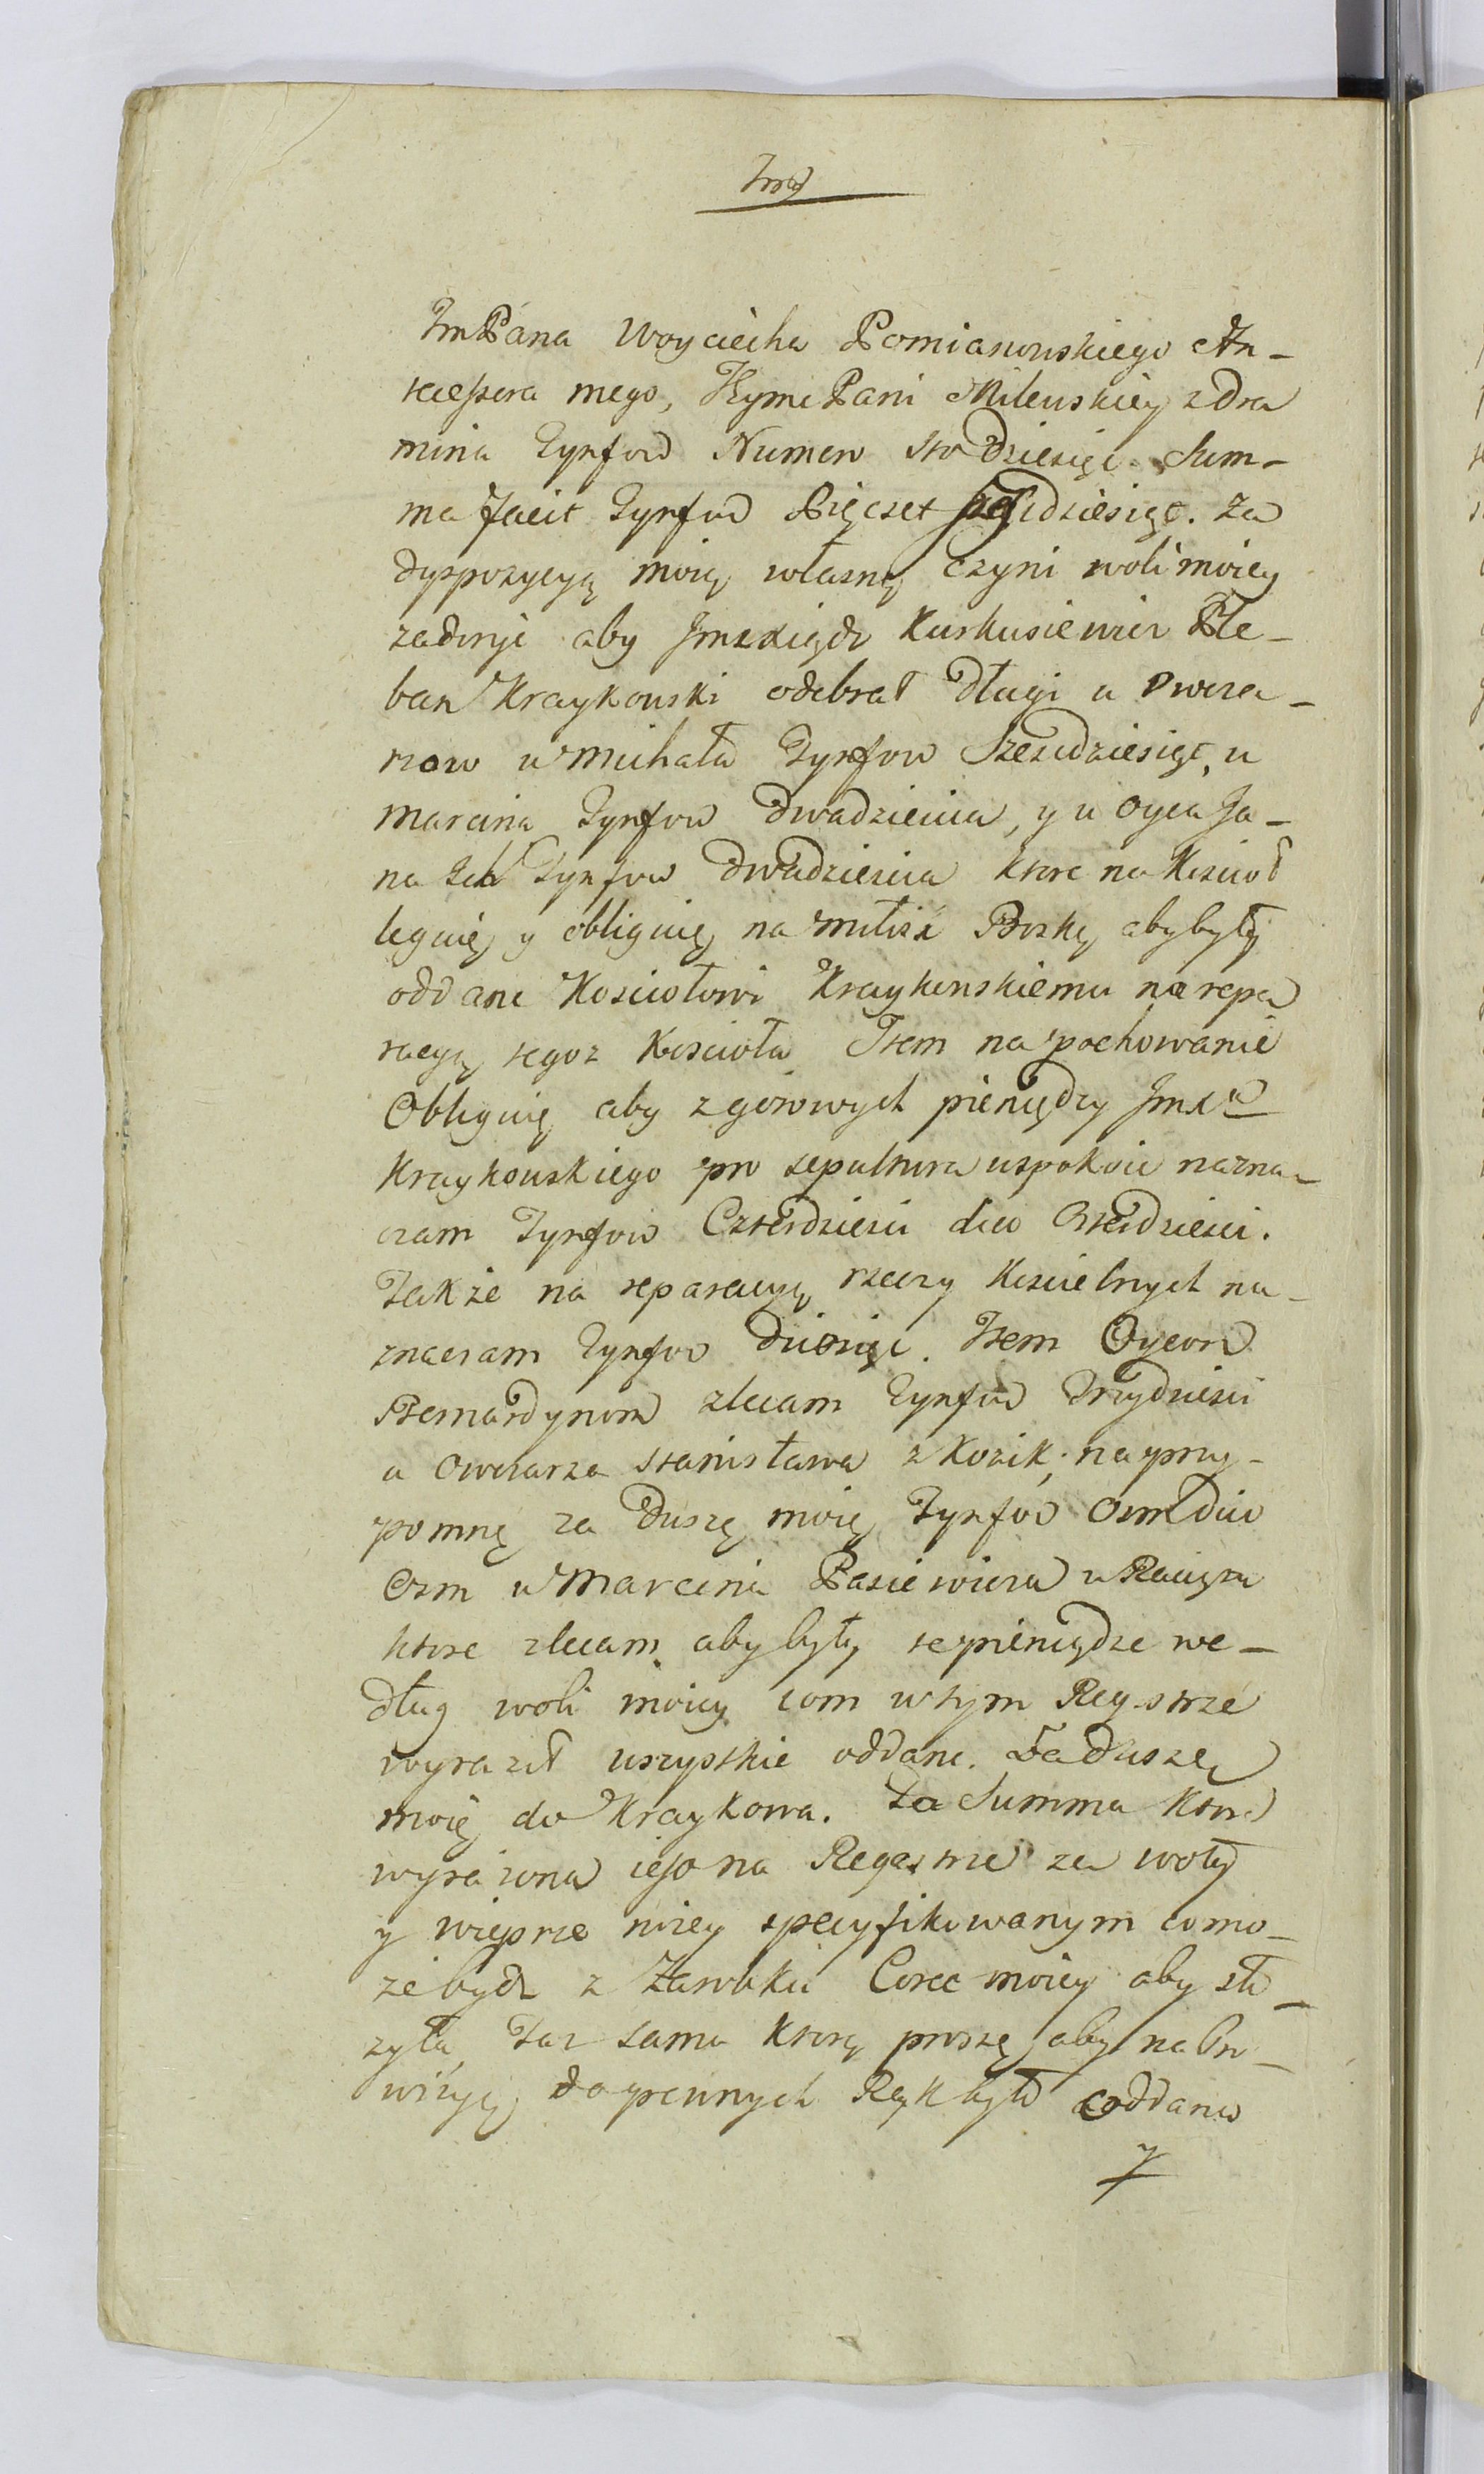 Im
ImPana Woyciecha Pomianowskiego An-
tecessera mego, JeymciPani Milewskiey zdra
mina Tynfow Numero Sto Dziesięc. Sum-
ma facit Tynfow Pięcset sześćdziesiąt. Za
dyspozycyą moię własną czyni woli moiey
zadosyć aby JmXiądz Kuskusiewicz Ple-
ban Kraykowski odebrał Długi u Owcza-
rzow u Michała Tynfow Sześcdziesiąt, u
Marcina Tynfow Dwadziescia, y u Oyca Ja-
na Tynfow Dwadziescia ktore na Kościoł
leguię y obliguię na miłość Boską aby były
oddane Kosciołowi Kraykowskiemu na repa
racyą tegoz Koscioła Item na pochowanie
Obliguię aby z gotowych pieniędzy JmXa
Kraykowskiego pro sepultura uspokoic nazna-
czam Tynfow Czterdziesci dico Czterdziesci.
Także na reparacyą rzeczy Koscielnych na-
znaczam Tynfow Dziesięc. Item Oycom
Bernardynom zlecam Tynfow Trzydziesci
u Owczarza Stanisława z Kozik; na przy-
pomnę za Duszę moię Tynfow Osm Dico
Osm u Marcina Pasiewicza w Raciązu
ktore zlecam aby były te pieniądze we-
dług woli moiey com w tym Regestrze
wyraził wszystkie oddane. Za Duszę
moię do Kraykowa. Ta Summa ktora
wyrazona iest na Regestrze za woły
y wieprze nizey specyfikowanym co mo-
ze bydz z Zarobku Corce moiey aby słu-
zyła, Taz sama ktorą proszę aby na Pro-
wizyą do pewnych Rąk była oddana
y